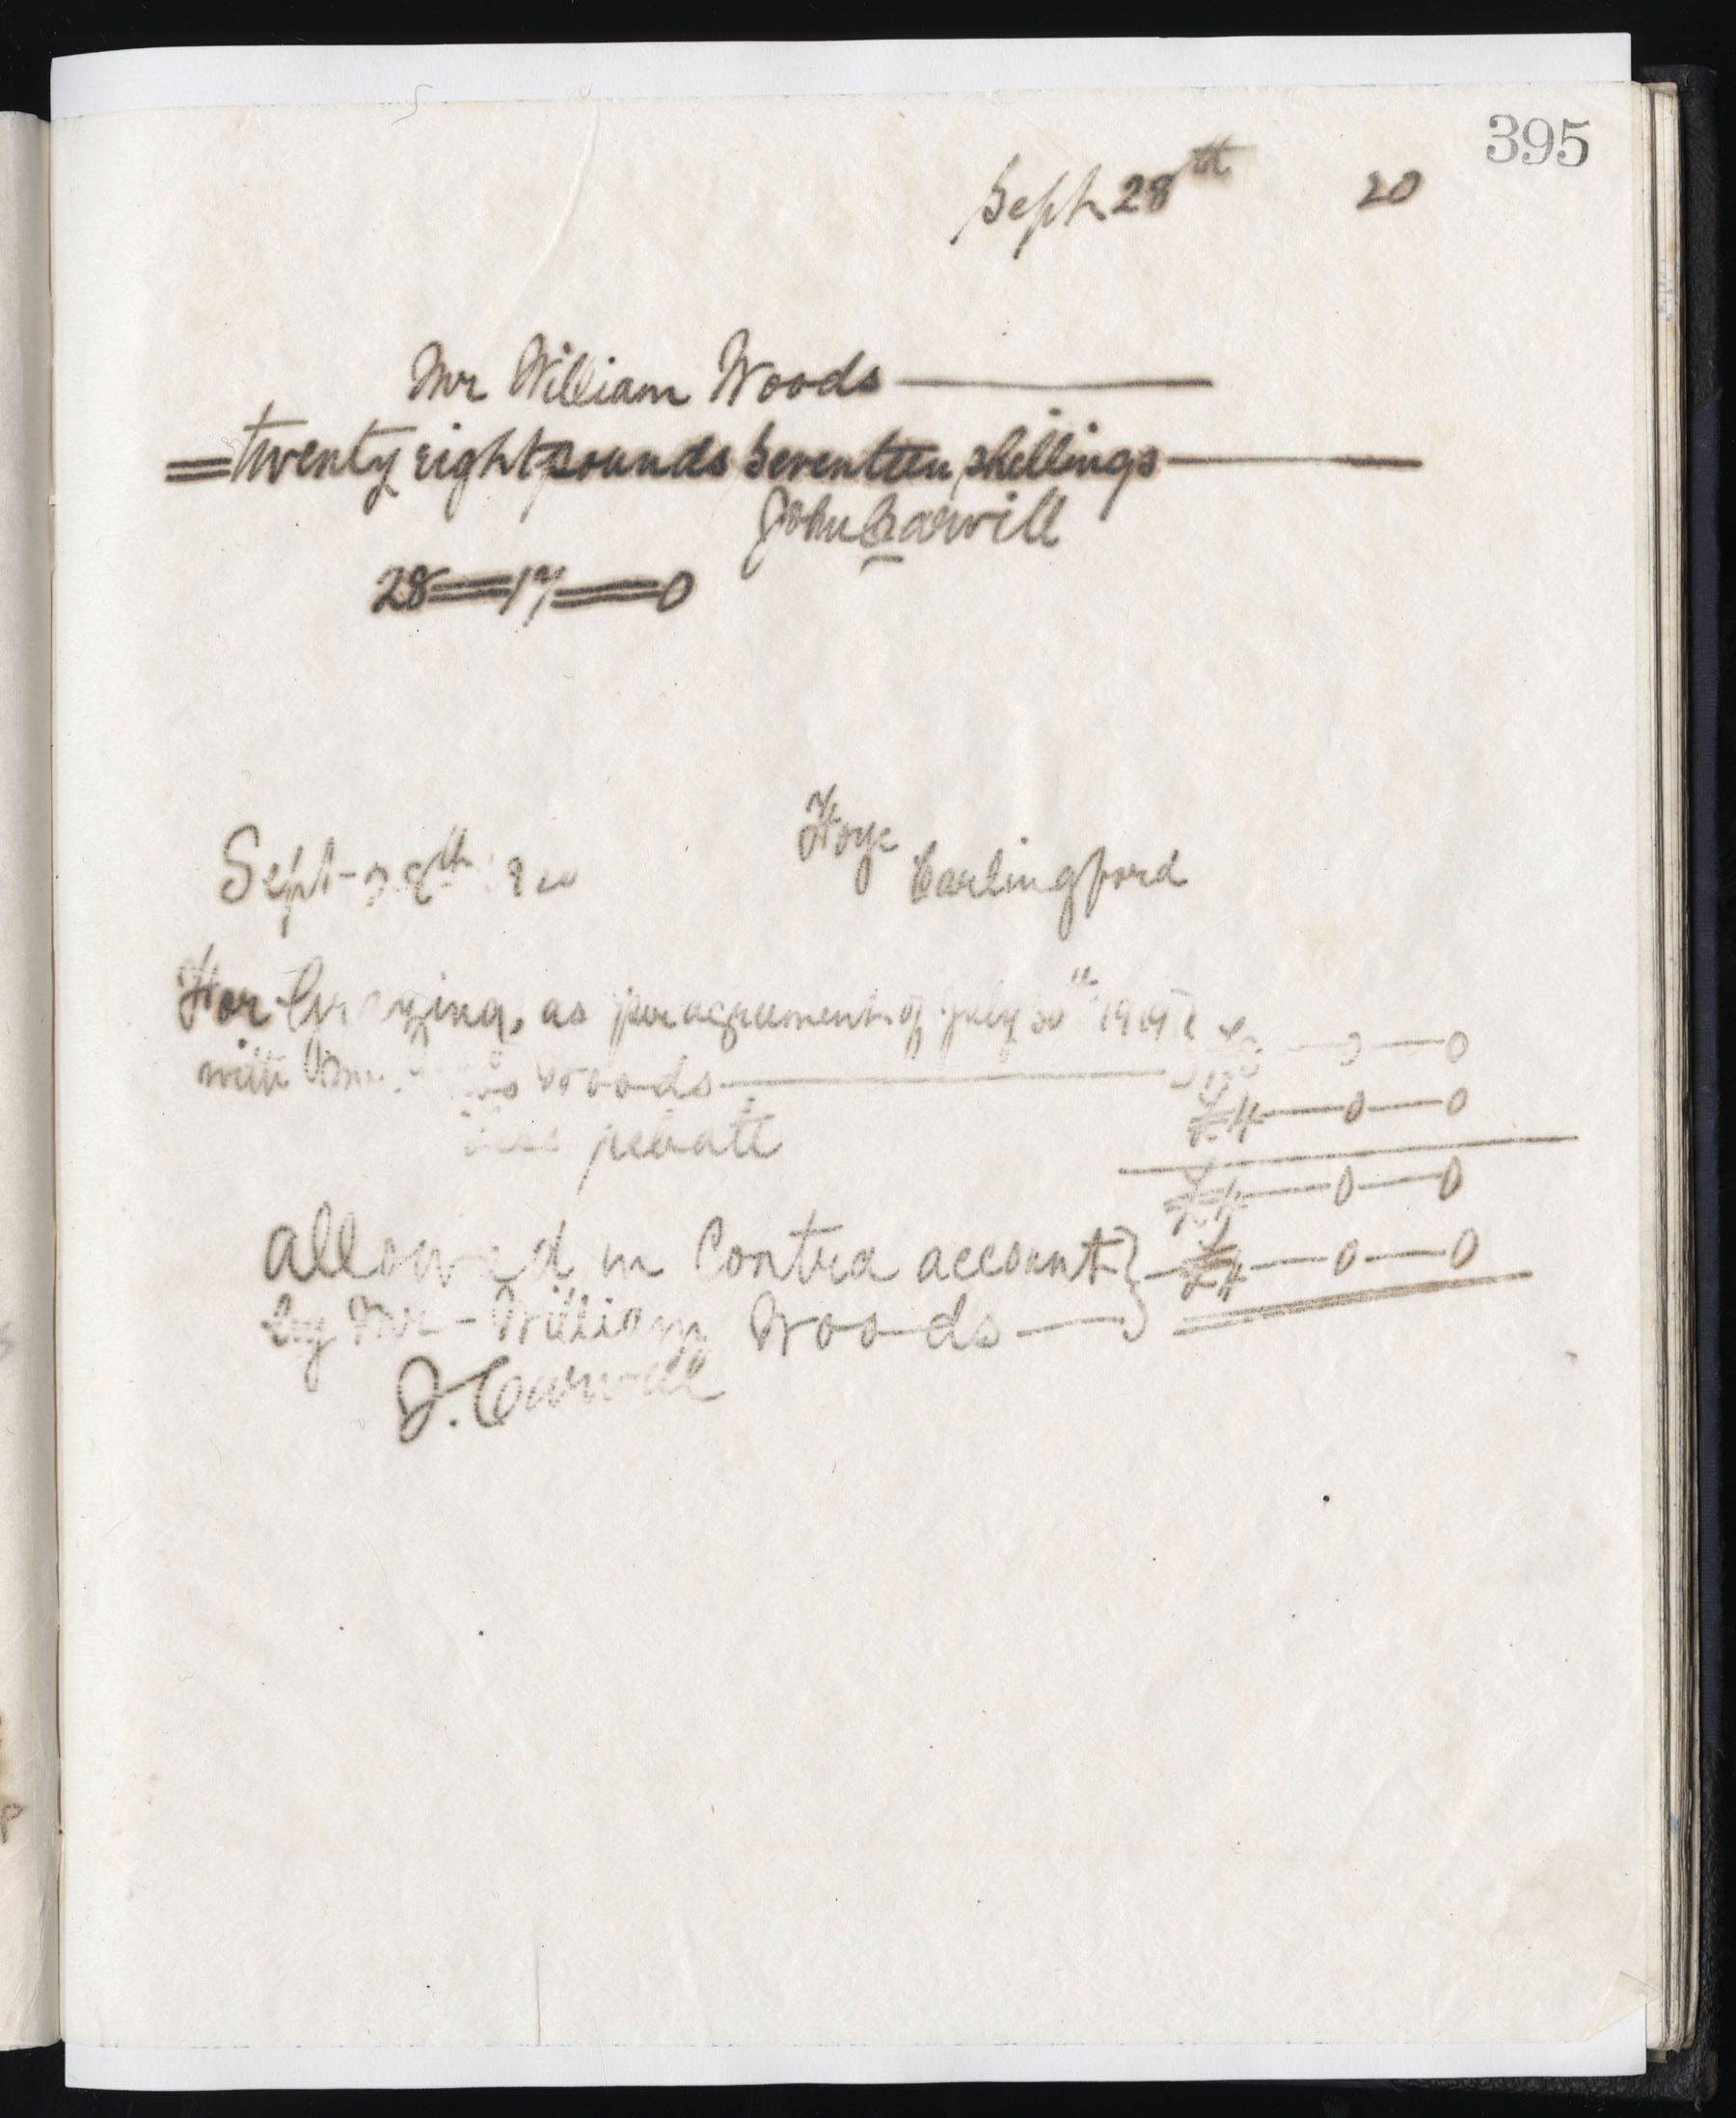 395
Sept 28th 20
Mr William Woods
twenty eight pounds Seventeen shillings
John Carvill
28=17=0
Foye
Sept- 28th 20 Carlingford
For Grazing, as per agreement of July 30th 1919
with Woods
£8—0—0
less rebate £4—0—0
£4—0—0
allowed in Contra account} £4—0—0
by Mr - William Woods
J. Carvill